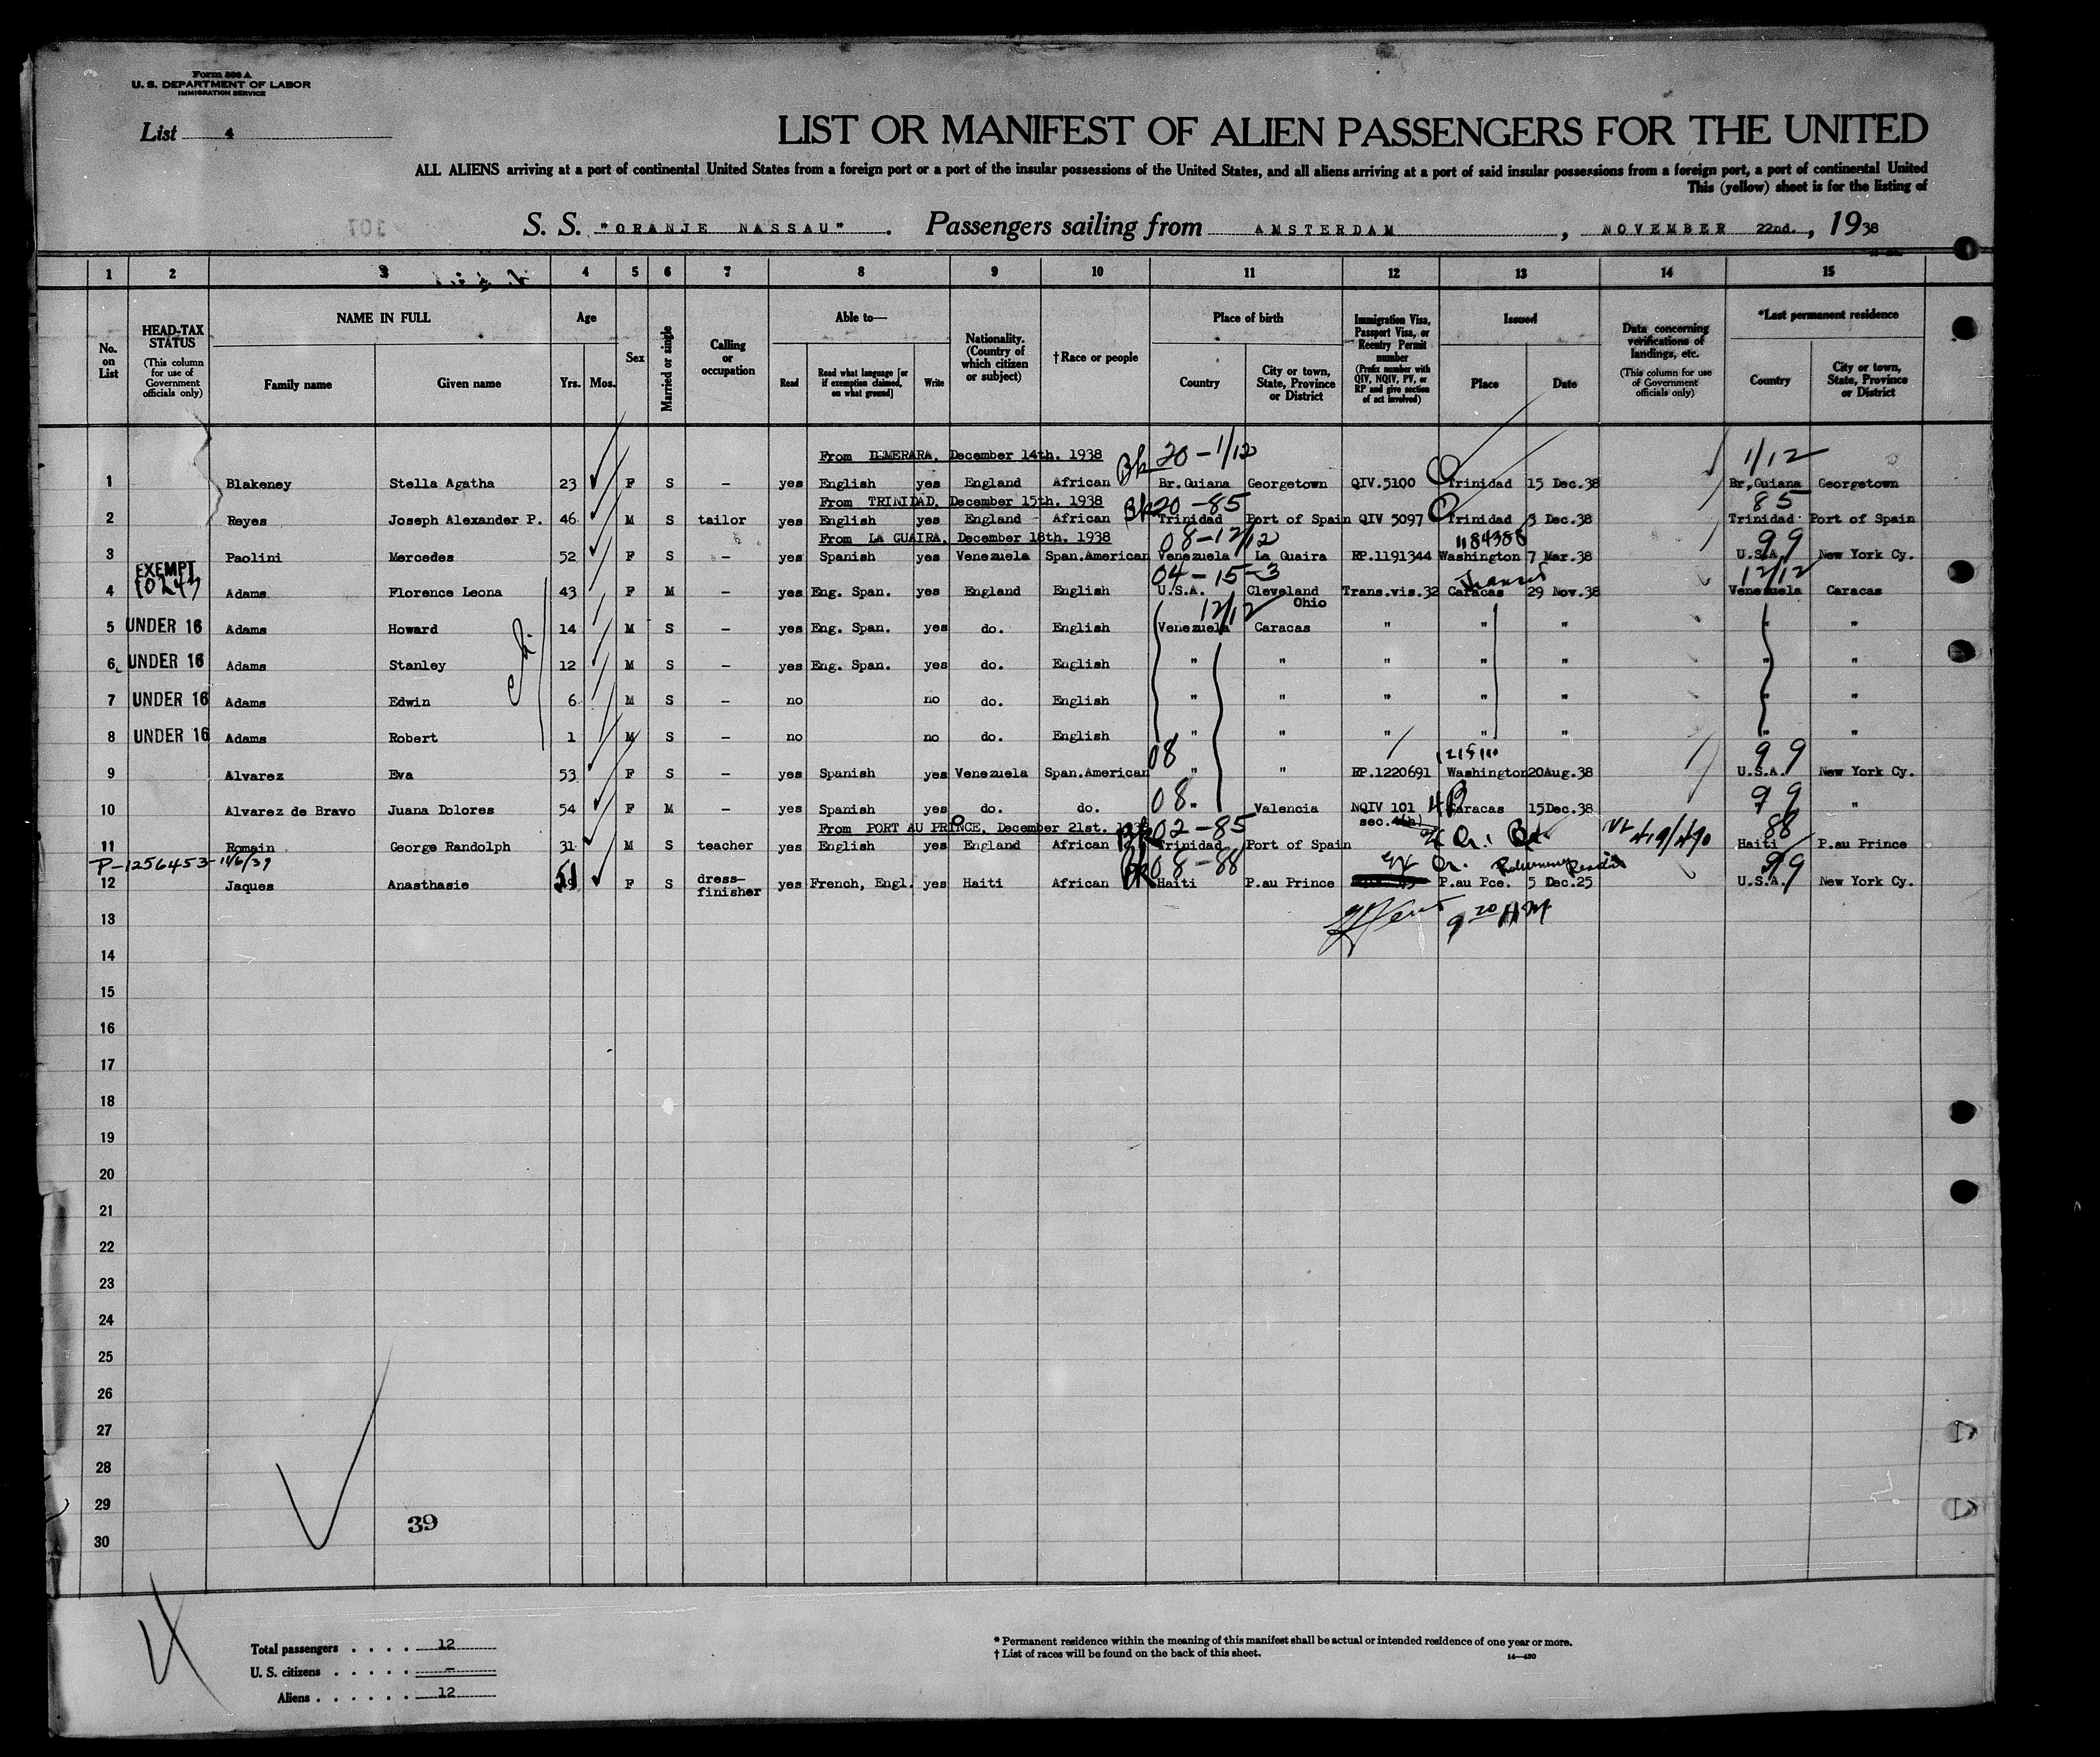 Form 500 A
U. S. DEPARTMENT OF LABOR
IMMIGRATION SERVICE
List 4
LIST OR MANIFEST OF ALIEN PASSENGERS FOR THE UNITED
ALL ALIENS arriving at a port of continental United States from a foreign port or a port of the insular possessions of the United States, and all aliens arriving at a port of said insular possessions from a foreign port, a port of continental United
This (yellow) sheet is for the listing of
S. S. "ORANJE NASSAU". Passengers sailing from AMSTERDAM, NOVEMBER 22nd., 1938
1 2 3 4 5 6 7 8 9 10 11 12 13 14 15
No. on List
HEAD-TAX STATUS (This column for use of Government officials only)
NAME IN FULL Family name Given name
Age Yrs. Mos.
Sex
Married or single
Calling or occupation
Able to— Read Read what language [or if exemption claimed, on what ground] Write
Nationality. (Country of which citizen or subject)
†Race or people
Place of birth Country City or town, State, Province or District
Immigration Visa, Passport Visa, or Reentry Permit number (Prefix number with QIV, NQIV, PV, or RP and give section of act involved)
Issued Place Date
Data concerning verifications of landings, etc. (This column for use of Government officials only)
*Last permanent residence Country City or town, State, Province or District
From DEMERARA, December 14th. 1938 20-1/12 1/12
1 Blakeney Stella Agatha 23 F S – yes English yes England African Br.Guiana Georgetown QIV.5100 Trinidad 15 Dec.38 Br,Guiana Georgetown
From TRINIDAD, December 15th. 1938 20-85 85
2 Reyes Joseph Alexander P. 46 M S tailor yes English yes England African Trinidad Port of Spain QIV 5097 Trinidad 3 Dec.38 Trinidad Port of Spain
From LA GUAIRA, December 18th. 1938 08-12/12 1184388 99
3 Paolini Mercedes 52 F S – yes Spanish yes Venezuela Span.American Venezuela La Guaira RP.1191344 Washington 7 Mar.38 U.S.A. New York Cy.
EXEMPT 04-15-3 Transit 12/12
4 Adams Florence Leona 43 F M – yes Eng. Span. yes England English U.S.A. Cleveland Ohio Trans.vis.32 Caracas 29 Nov.38 Venezuela Caracas
12/12
5 UNDER 16 Adams Howard 14 M S – yes Eng. Span. yes do. English Venezuela Caracas " " " " "
6 UNDER 16 Adams Stanley 12 M S – yes Eng. Span. yes do. English " " " " " " "
7 UNDER 16 Adams Edwin 6 M S – no no do. English " " " " " " "
8 UNDER 16 Adams Robert 1 M S – no no do. English " " " " " "
08 99
9 Alvarez Eva 53 F S – yes Spanish yes Venezuela Span.American " " RP.1220691 Washington 20Aug.38 U.S.A. New York Cy.
08 99
10 Alvarez de Bravo Juana Dolores 54 F M – yes Spanish yes do. do. " Valencia NQIV 101 Caracas 15Dec.38 "
sec.4(b)
From PORT AU PRINCE, December 21st. 1938 02-85 88
11 Romain George Randolph 31 M S teacher yes English yes England African Trinidad Port of Spain Haiti P.au Prince
P-1256453-11/6/39 08-88 99
12 Jaques Anasthasie 51 F S dress-finisher yes French, Engl. yes Haiti African Haiti P.au Prince P.au Pce. 5 Dec.25 U.S.A. New York Cy.
13
9 20 AM
14
15
16
17
18
19
20
21
22
23
24
25
26
27
28
29
39
30
Total passengers . . . . 12
U. S. citizens . . . . . –
Aliens . . . . . . 12
* Permanent residence within the meaning of this manifest shall be actual or intended residence of one year or more.
† List of races will be found on the back of this sheet.
14—430